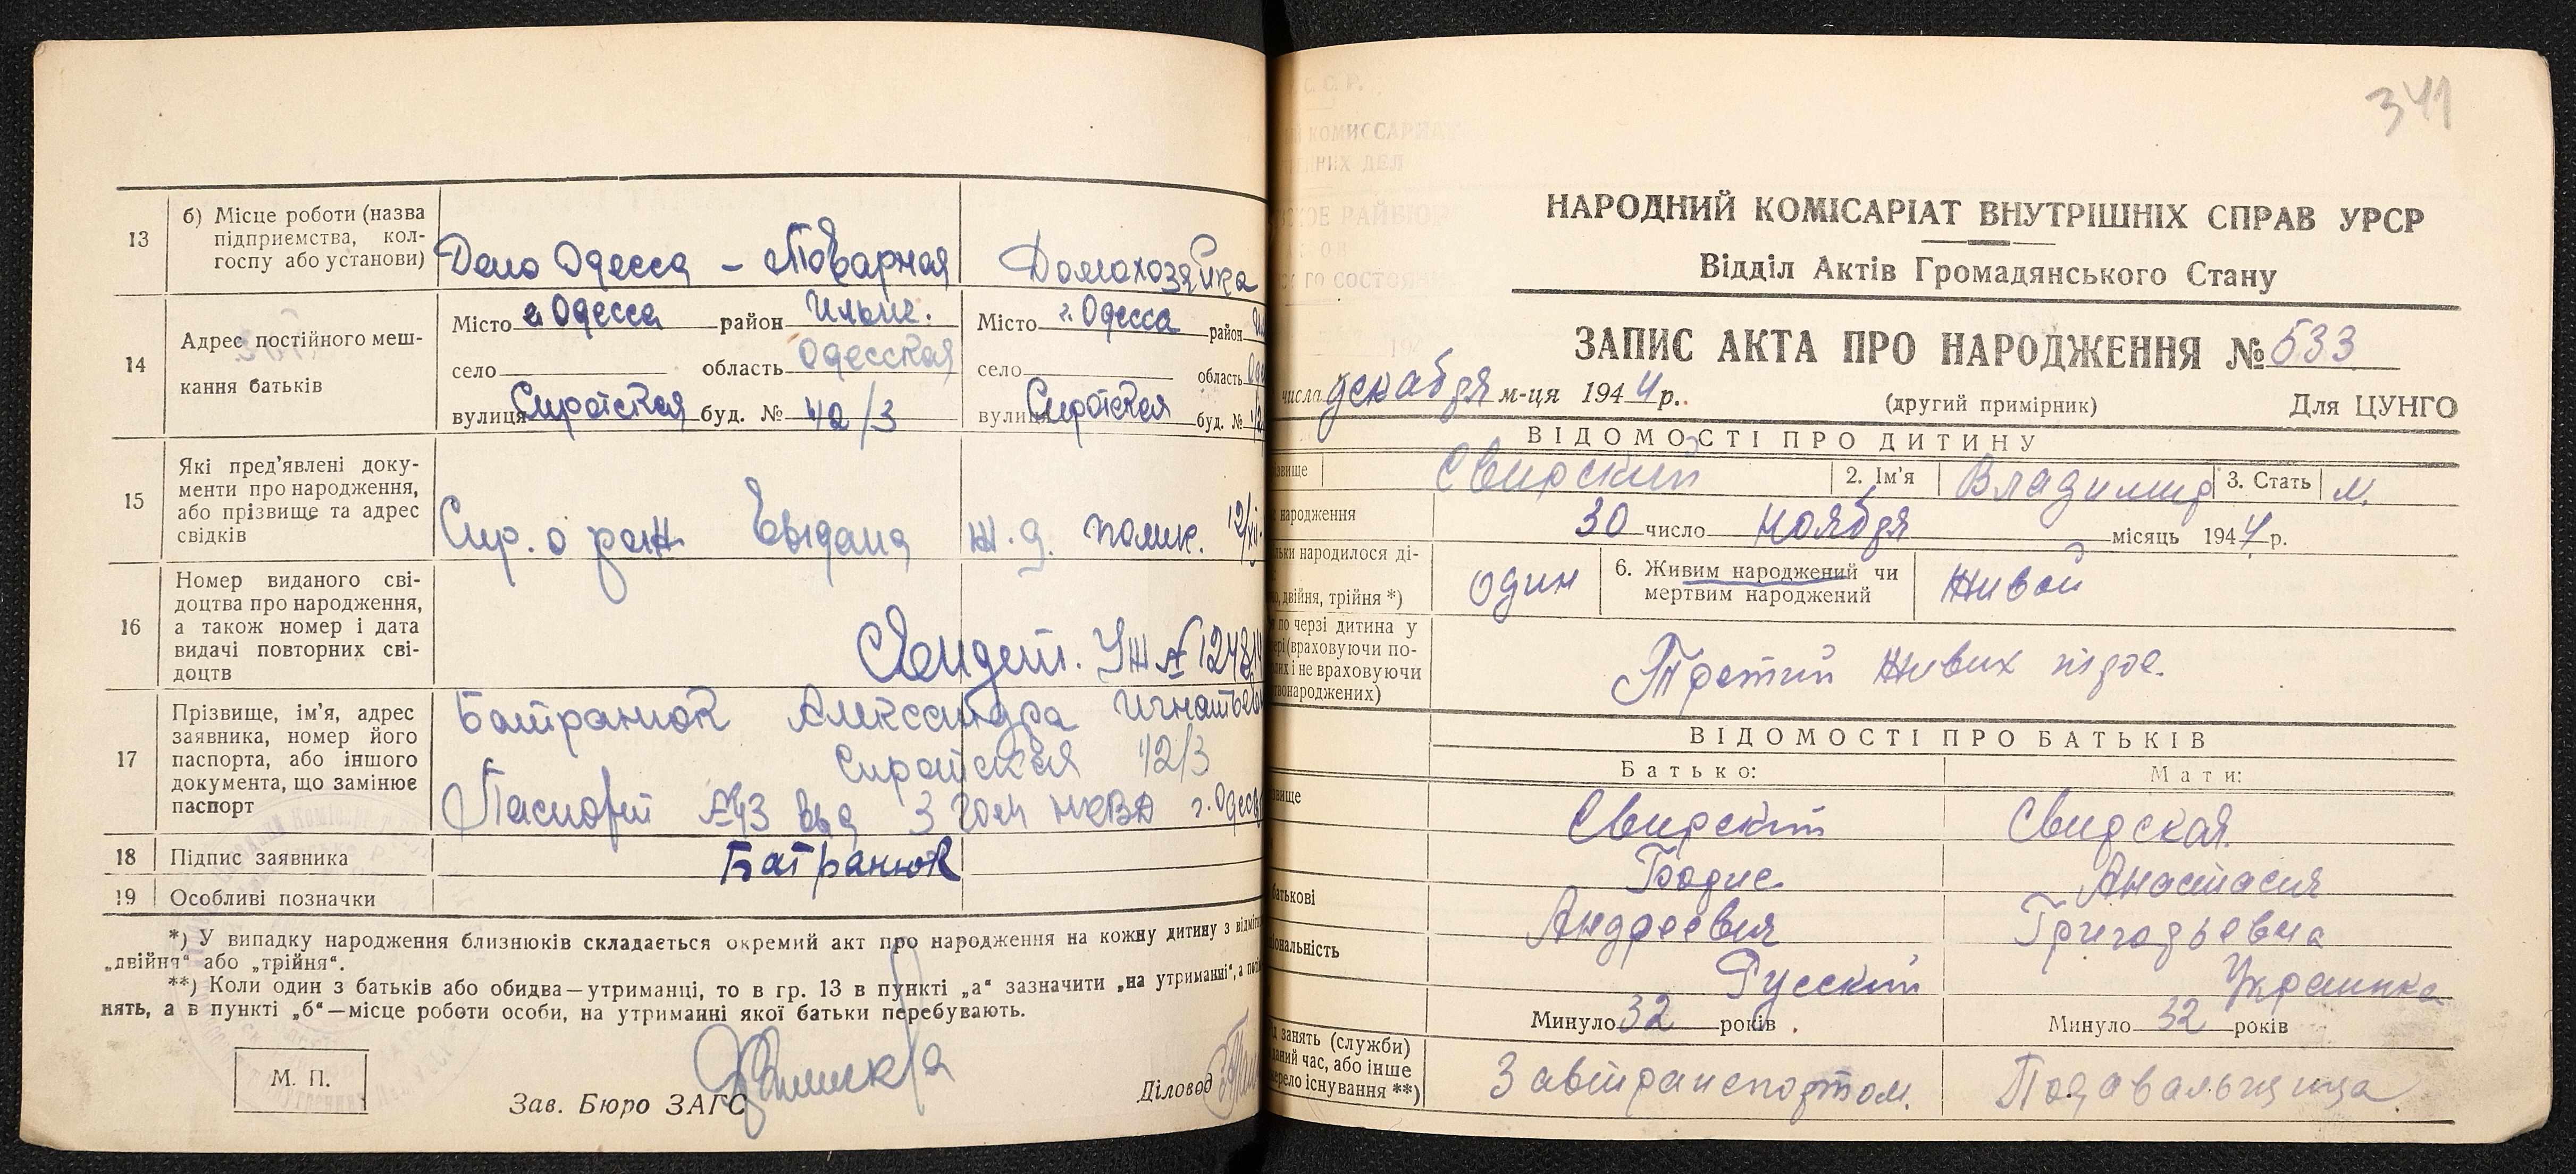 13
б) Місце роботи (назва
підприємства, кол-
госпу або установи)
Депо Одесса – Товарная
Домохозяйка
14
Адрес постійного меш-
кання батьків
Місто г. Одесса район Ильич.
Місто г. Одесса район
село область Одесская
село область
вулиця Сиротская буд. № 42/3
вулиця Сиротская буд. №
15
Які пред'явлені доку-
менти про народження,
або прізвище та адрес
свідків
Спр. о рож. выдана ж.д. полик.
16
Номер виданого сві-
доцтва про народження,
а також номер і дата
видачі повторних сві-
доцтв
Свидет. УЖ №
17
Прізвище, ім'я, адрес
заявника, номер його
паспорта, або іншого
документа, що замінює
паспорт
Батранюк Александра
Сиротская 42/3
Паспорт выд 3 НКВД г.
18
Підпис заявника
Батранюк
19
Особливі позначки
*) У випадку народження близнюків складається окремий акт про народження на кожну дитину з
„двійня“ або „трійня“.
**) Коли один з батьків або обидва—утриманці, то в гр. 13 в пункті „а“ зазначити „на утриманні“, а
нять, а в пункті „б“—місце роботи особи, на утриманні якої батьки перебувають.
М. П.
Зав. Бюро ЗАГС
Діловод
341
НАРОДНИЙ КОМІСАРІАТ ВНУТРІШНІХ СПРАВ УРСР
Відділ Актів Громадянського Стану
ЗАПИС АКТА ПРО НАРОДЖЕННЯ № 533
числа декабря м-ця 1944 р.
(другий примірник)
Для ЦУНГО
ВІДОМОСТІ ПРО ДИТИНУ
Свирский 2. Ім'я Владимир 3. Стать м.
народження 30 число ноября місяць 1944 р.
народилося ді-
двійня, трійня *)
один
6. Живим народжений чи
мертвим народжений
живой
по черзі дитина у
(враховуючи по-
і не враховуючи
Третий живых трое.
ВІДОМОСТІ ПРО БАТЬКІВ
Батько: Мати:
Свирский Свирская
Борис Анастасия
батькові Андреевич Григорьевна
Русский Украинка
Минуло 32 років
Минуло 32 років
занять (служби)
час, або інше
існування **)
Завтранспортом. Подавальщица